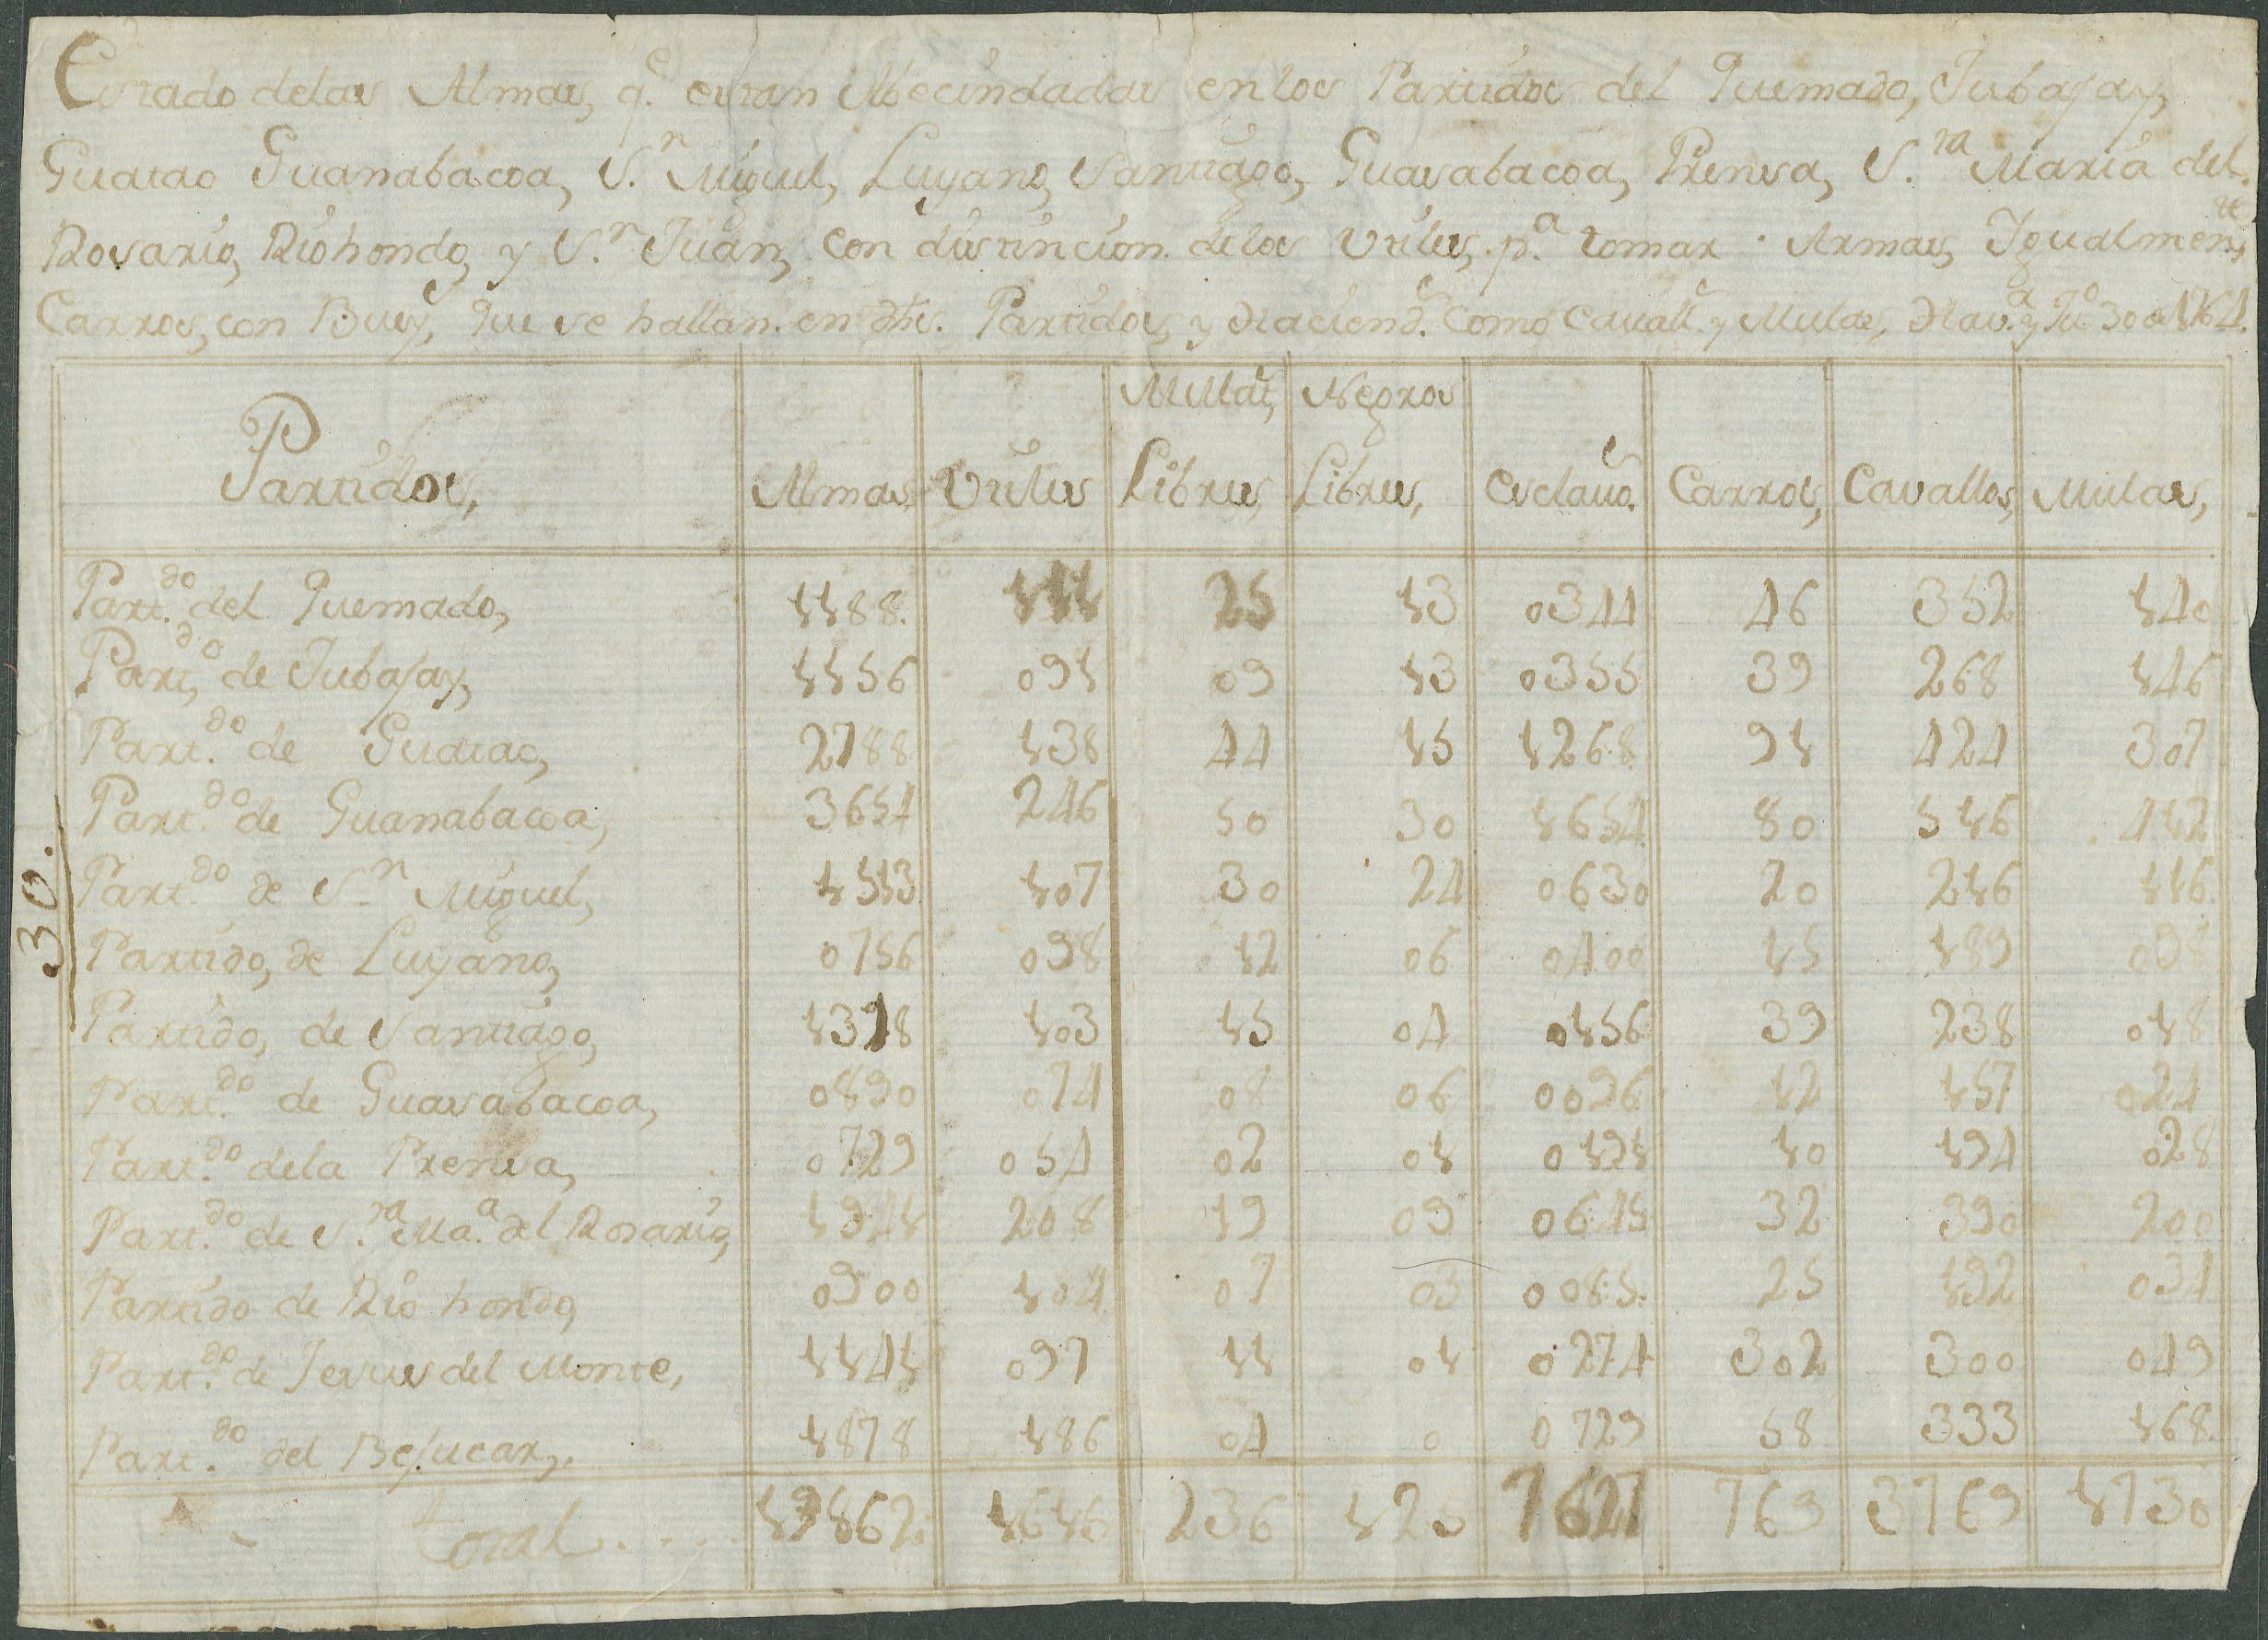 Estado delas Almas, q.e estan Abecindadas en los Partidos del Quemado, Jubajay,
Guatao Guanabacoa, S.n Miguel, Luyano, Santiago, Guasabacoa, Prensa, S.ta Maria del
Rosario, Riohondo, y S.n Juan, con distincion delos Utiles, p.a tomar Armas, Igualmen.te
Carros, con Buey.s que se hallan en dhos. Partidos, y Haciend.s como Cauall.s y Mulas, Hav.a y Ju.o 30 de 1764.
Mulat.s Negros
Partidos, Almas Utiles Libres, Libres, esclauo.s Carros, Cavallos, Mulas,
Part.do del Quemado, 1188. 111 25 13 0344 46 352 140
Part.do de Jubajay, 1156 091 09 13 0355 39 268 146
Part.do de Guatao, 2788 138 44 15 1268 91 424 307
Part.do de Guanabacoa, 3654 246 50 30 1654 80 516 412
Part.do de S.n Miguel, 1513 107 30 24 0630 20 216 116
Partido, de Luyano, 0756 098 12 06 0400 15 189 098
Partido, de Santiago, 1328 103 15 04 0156 39 238 018
Part.do de Guasabacoa, 0890 074 08 06 0096 12 157 024
Part.do dela Prensa, 0729 054 02 01 0191 10 194 028
Part.do de S.ta Ma.a del Rosario, 1941 208 19 09 0645 32 390 200
Partido de Rio hondo, 0900 104 07 03 0085 25 192 034
Part.do de Jesus del Monte, 1141 097 11 01 0274 302 300 049
Part.do del Bejucar,. 1878 186 04 0 0729 58 333 168
total.... 19862 1616 236 125 7627 769 3769 1730
30.